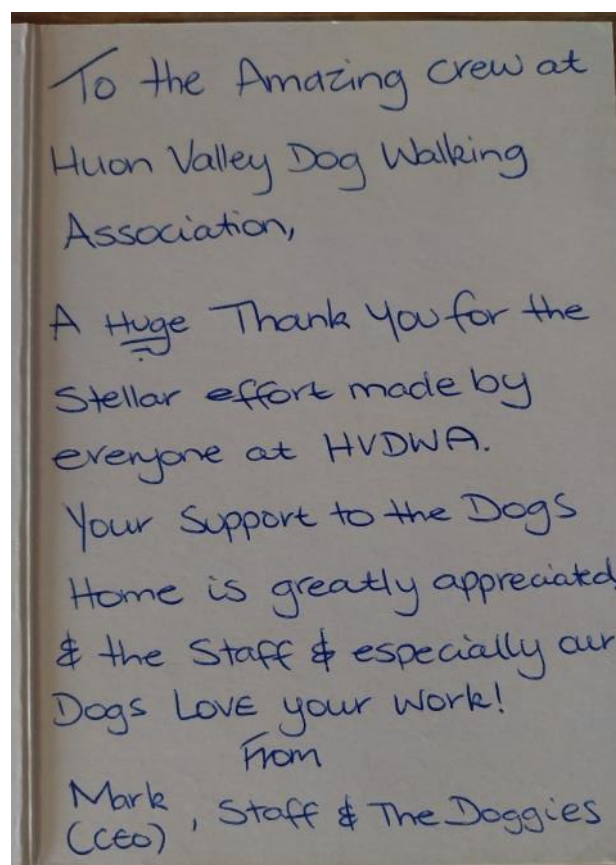 To the Amazing crew at
Huon Valley Dog Walking
Association,
A Huge Thank You for the
Stellar effort made by
everyone at HVDWA.
Your Support to the Dogs
Home is greatly appreciated,
& the Staff & especially our
Dogs LOVE your work!
From
Mark , Staff & The Doggies
(CEO)